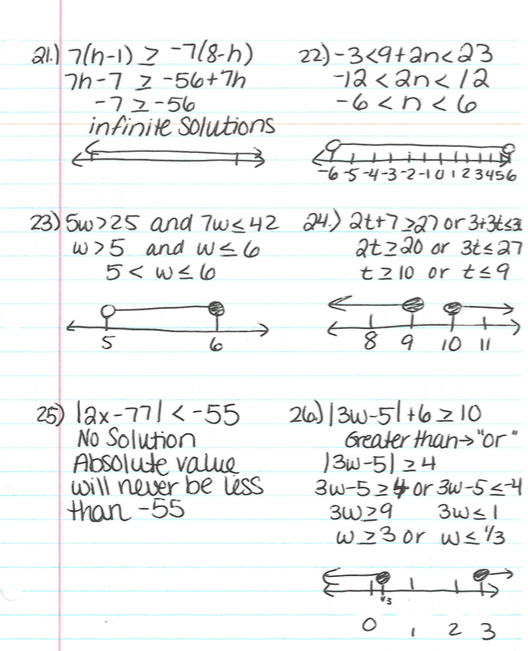 21.) 7(n-1) ≥ -7(8-n)
7n-7 ≥ -56+7n
-7 ≥ -56
infinite solutions
22) -3<9+2n<23
-12 < 2n < 12
-6 < n < 6
-6 -5 -4 -3 -2 -1 0 1 2 3 4 5 6
23) 5w>25 and 7w≤42
w>5 and w≤6
5 < w ≤ 6
5 6
24.) 2t+7≥27 or 3+3t≤3
2t≥20 or 3t≤27
t≥10 or t≤9
8 9 10 11
25) |2x-77| < -55
No Solution
Absolute value
will never be less
than -55
26) |3w-5|+6 ≥ 10
Greater than→"or"
|3w-5| ≥4
3w-5≥4 or 3w-5≤-4
3w≥9 3w≤1
w≥3 or w≤1/3
1/3
0 1 2 3